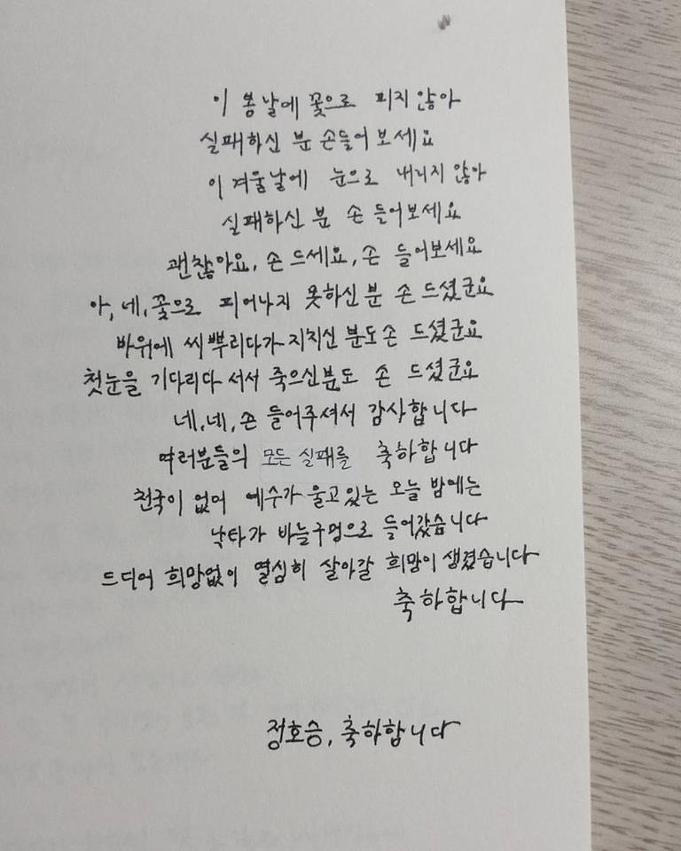 이 봄날에 꽃으로 피지 않아
실패하신 분 손들어 보세요
이 겨울날에 눈으로 내리지 않아
실패하신 분 손 들어보세요
괜찮아요, 손 드세요, 손 들어보세요
아, 네, 꽃으로 피어나지 못하신 분 손 드셨군요
바위에 씨 뿌리다가 지치신 분도 손 드셨군요
첫눈을 기다리다 서서 죽으신분도 손 드셨군요
네, 네, 손 들어주셔서 감사합니다
여러분들의 모든 실패를 축하합니다
천국이 없어 예수가 울고있는 오늘 밤에는
낙타가 바늘구멍으로 들어갔습니다
드디어 희망없이 열심히 살아갈 희망이 생겼습니다
축하합니다
정호승, 축하합니다